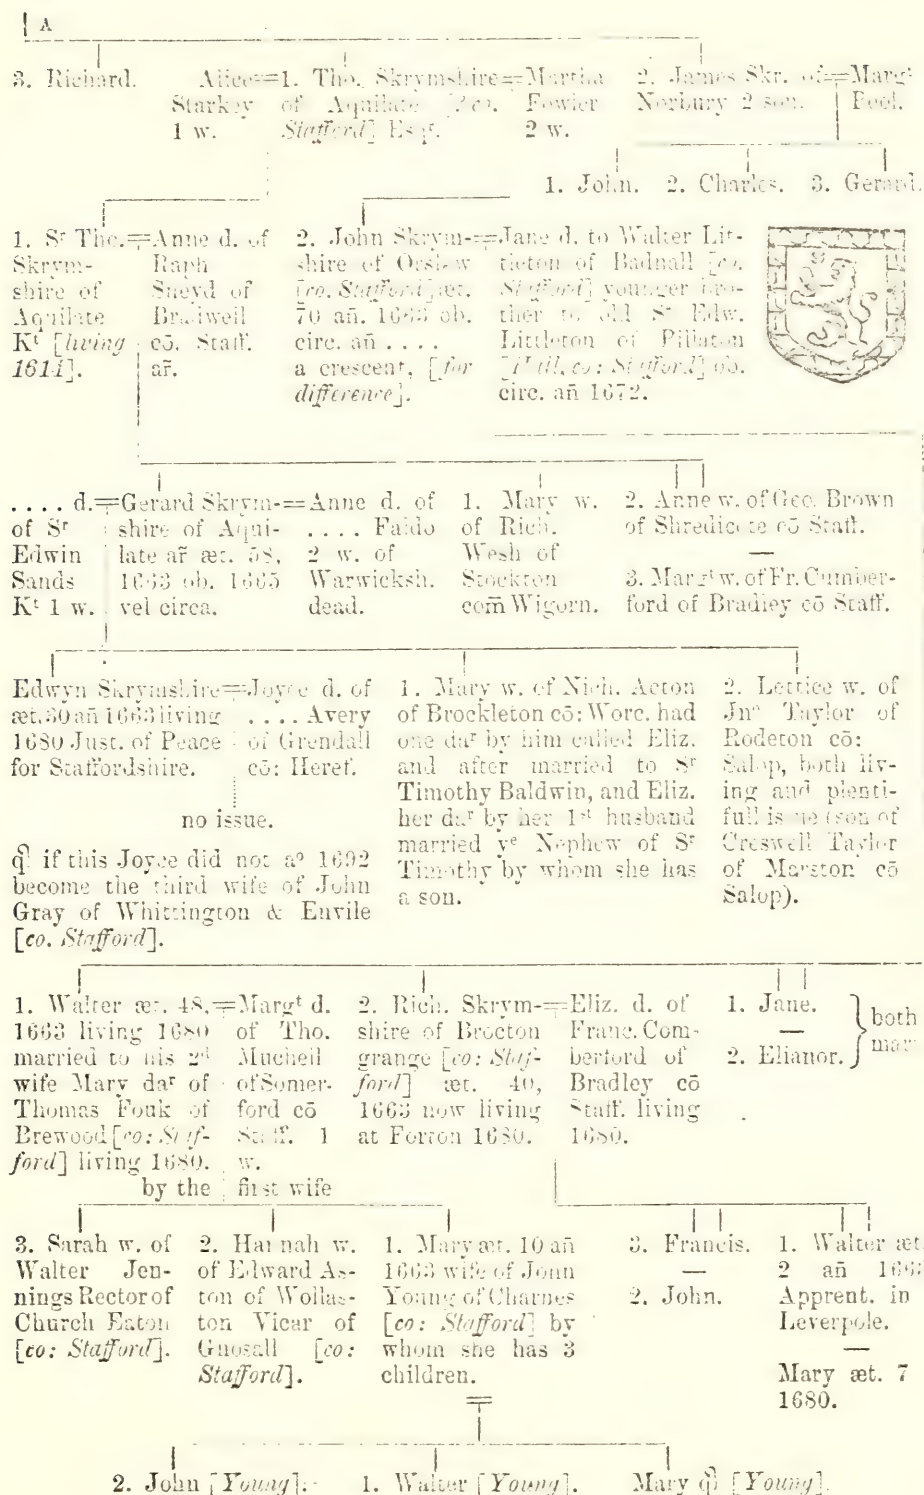 A
3. Richard.
Alice
Starkey
1 w.
1. Tho. Skrymshire
of Aquilate [? co.
Stafford] Esq.
Martha
Fowler
2 w.
2. James Skr. of
Norbury 2 son.
Margt
Pool.
1. John. 2. Charles. 3. Gerard.
1. Sr Tho.
Skrym-
shire of
Aquilate
Kt [living
1614].
Anne d. of
Raph
Sneyd of
Bradwell
cõ. Staff.
ar̃.
2. John Skrym-
shire of Orslow
[co. Stafford] æt.
70 añ. 1663 ob.
circ. añ ....
a crescent, [for
difference].
Jane d. to Walter Lit-
tleton of Badnall [co.
Stafford] younger bro-
ther to old Sr Edw.
Littleton of Pillaton
[Hall, co: Stafford] ob.
circ. añ 1672.
.... d.
of Sr
Edwin
Sands
Kt 1 w.
Gerard Skrym-
shire of Aqui-
late ar̃ æt. 58,
1663 ob. 1665
vel circa.
Anne d. of
.... Faldo
2 w. of
Warwicksh.
dead.
1. Mary w.
of Rich.
Wesh of
Stockton
com̃ Wigorn.
2. Anne w. of Geo. Brown
of Shredicote cõ Staff.
—
3. Margt w. of Fr. Cumber-
ford of Bradley cõ Staff.
Edwyn Skrymshire
æt. 30 añ 1663 living
1680 Just. of Peace
for Staffordshire.
Joyce d. of
.... Avery
of Grendall
cõ: Heref.
no issue.
q̃ if this Joyce did not ao 1692
become the third wife of John
Gray of Whittington & Envile
[co. Stafford].
1. Mary w. of Nich. Acton
of Brockleton cõ: Worc. had
one dar by him called Eliz.
and after married to Sr
Timothy Baldwin, and Eliz.
her dar by her 1st husband
married ye Nephew of Sr
Timothy by whom she has
a son.
2. Lettice w. of
Jno Taylor of
Rodeton cõ:
Salop, both liv-
ing and plenti-
full is ue (son of
Creswell Taylor
of Marston cõ
Salop).
1. Walter æt. 48,
1663 living 1680
married to his 2d
wife Mary dar of
Thomas Fouk of
Brewood [co: Staf-
ford] living 1680.
Margt d.
of Tho.
Mucheil
of Somer-
ford cõ
Staff. 1
w.
by the first wife
2. Rich. Skrym-
shire of Brocton
grange [co: Staf-
ford] æt. 40,
1663 now living
at Forton 1680.
Eliz. d. of
Franc. Com-
berford of
Bradley cõ
Staff. living
1680.
1. Jane.
—
2. Elianor.
both
mar
3. Sarah w. of
Walter Jen-
nings Rector of
Church Eaton
[co: Stafford].
2. Hannah w.
of Edward As-
ton of Wollas-
ton Vicar of
Gnosall [co:
Stafford].
1. Mary æt. 10 añ
1663 wife of John
Young of Charnes
[co: Stafford] by
whom she has 3
children.
3. Francis.
—
2. John.
1. Walter æt.
2 añ 1663
Apprent. in
Leverpole.
—
Mary æt. 7
1680.
2. John [Young].
1. Walter [Young].
Mary q̃ [Young].